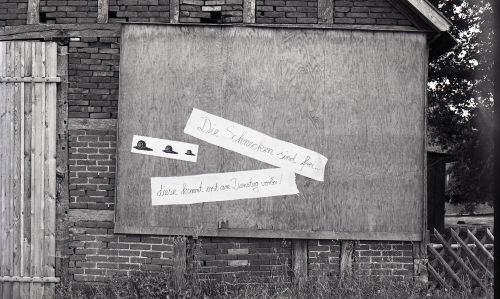 Die Schnecken sind hier...
diese kommt erst am Dienstag vorbei!